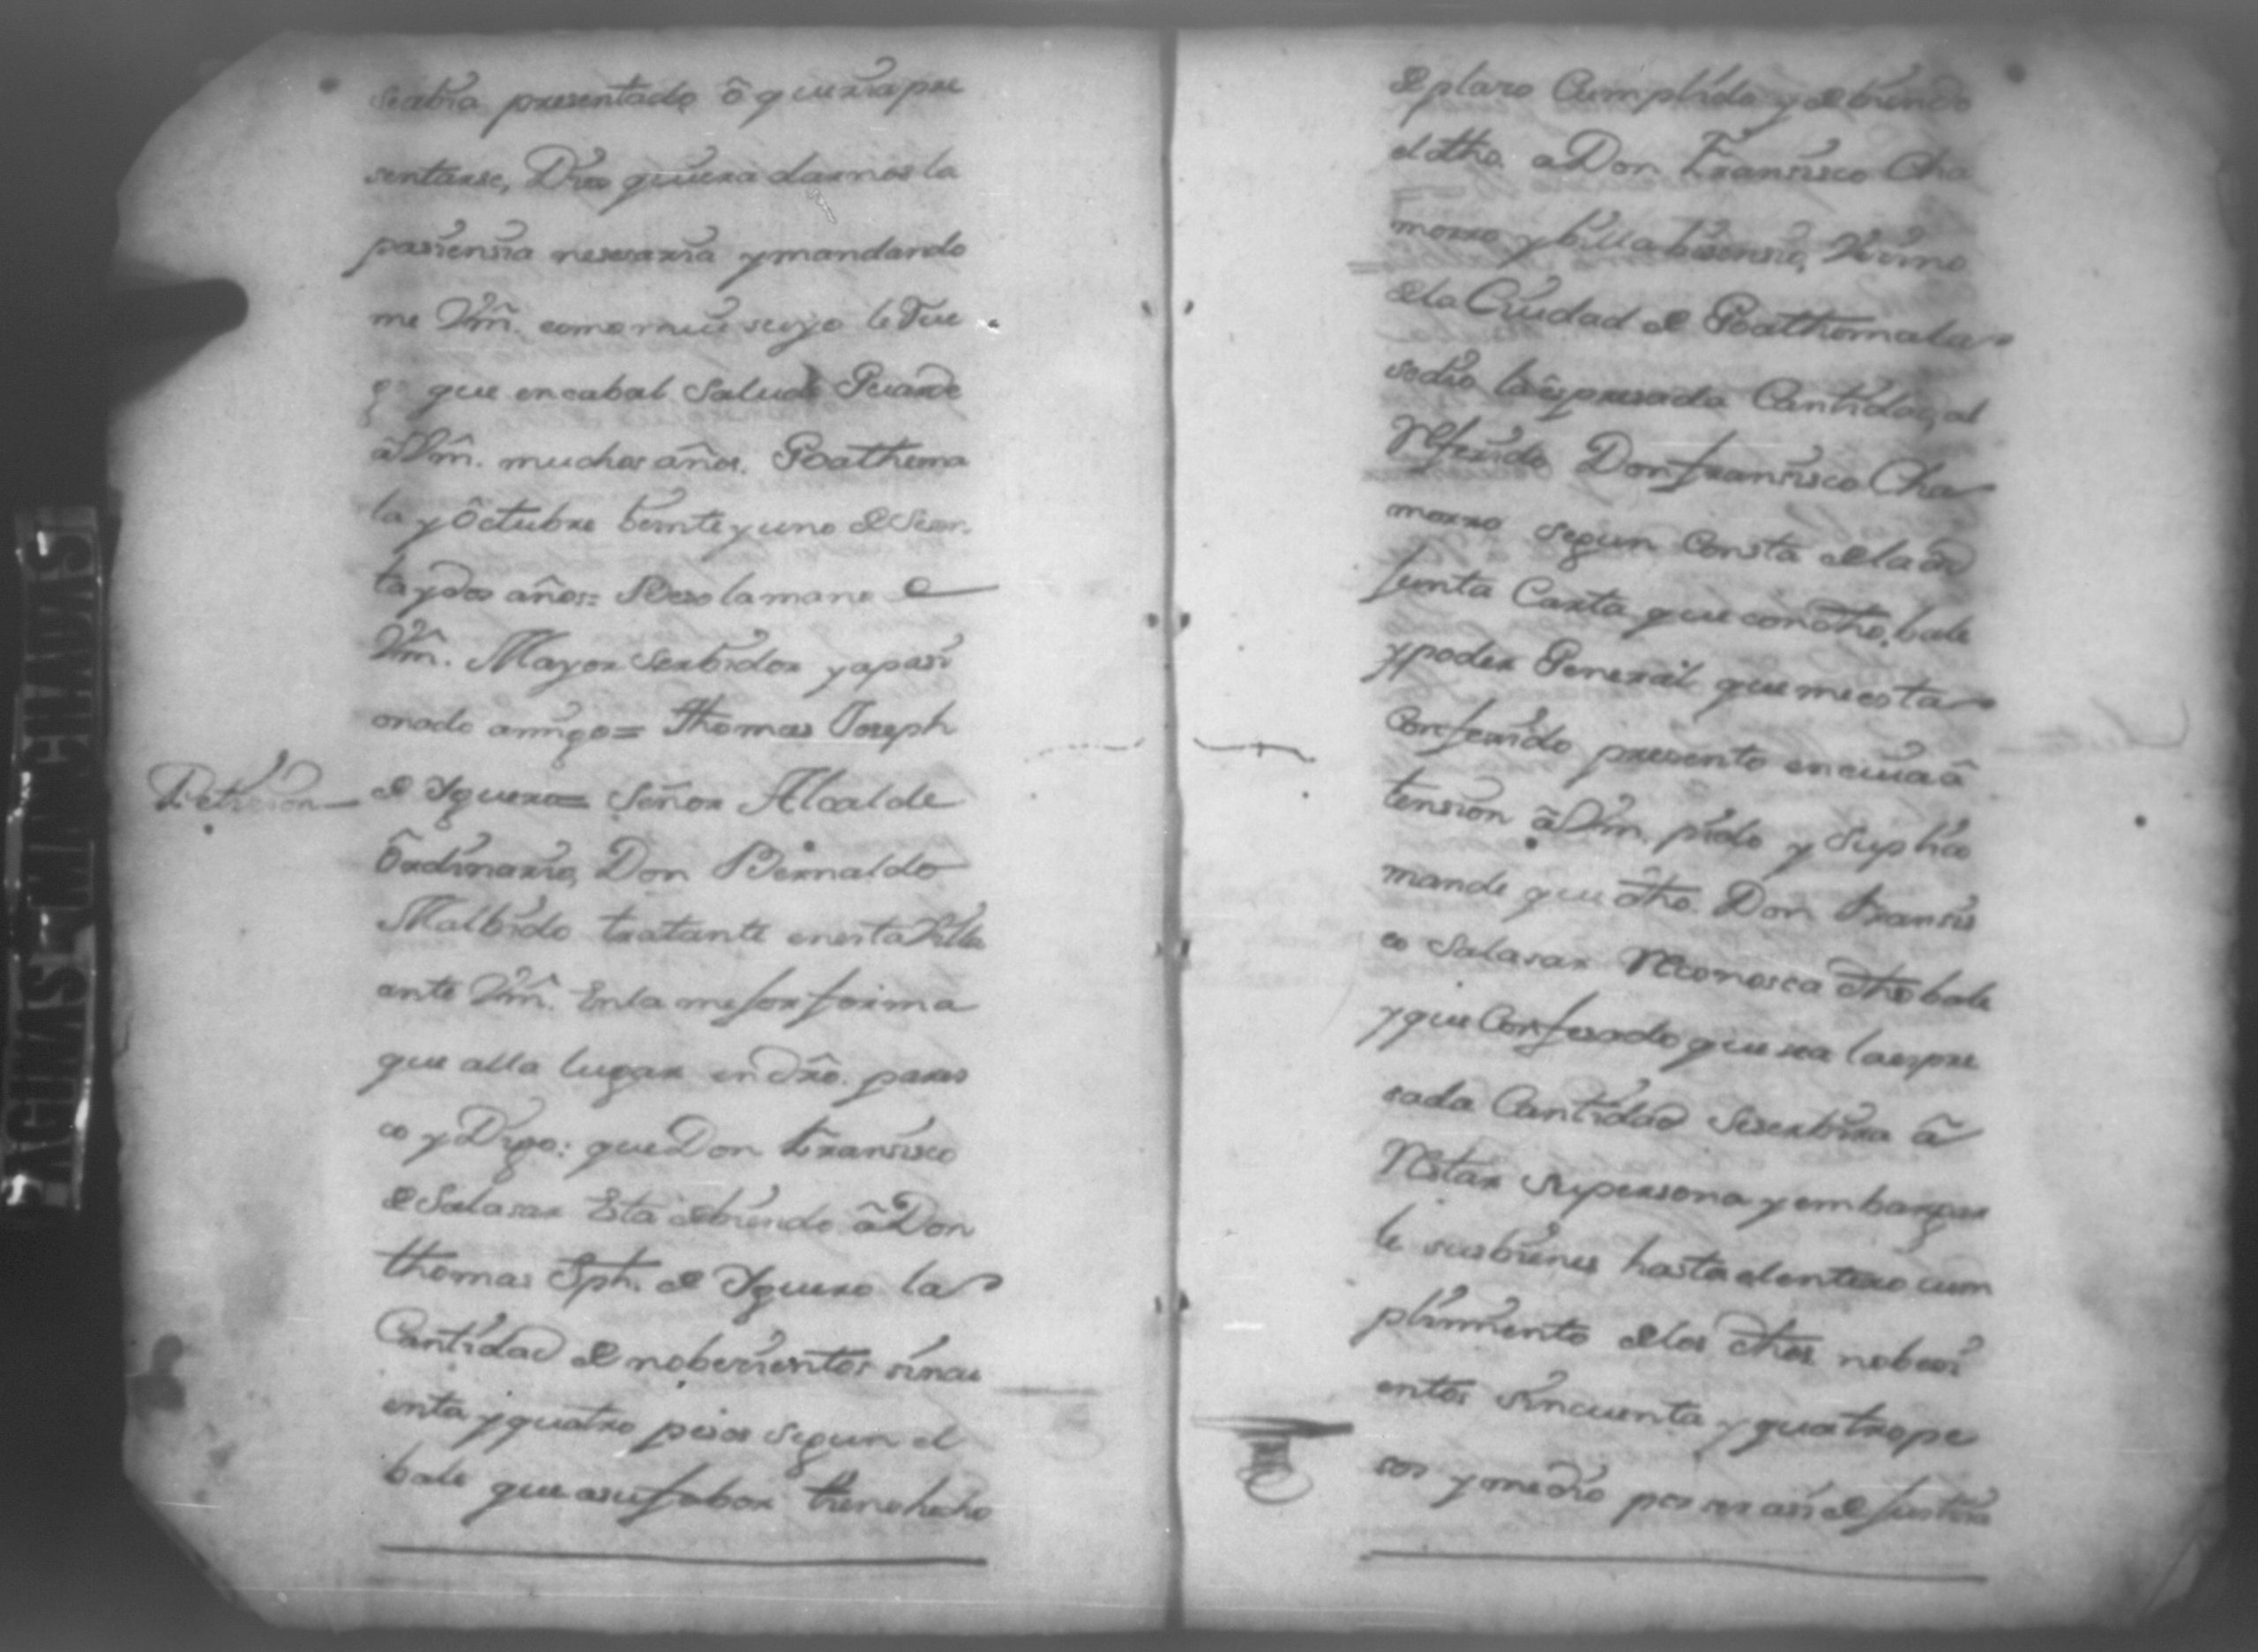 seabia presentado ô queria pre
sentarse, Dios quiera darnos la
pasiensia nesesaria y mandando
me Vm̃. como mui suyo le Rue
go que en cabal Salud Guarde
â Vm̃. muchos años. Goathema
la y ôctubre beinte y uno de Sesen
ta y dos años= Beso la mano de
Vm̃. Mayor Serbidor y apasi
onado amigo= Thomas Joseph
Petision de Yguera= Señor Alcalde
Ôrdinario, Don Bernaldo
Malbido tratante en esta Villa
ante Vm̃. En la mejor forma
que alla lugar en dr̃o. pares
co y Digo: que Don Fransisco
de Salasar Esta debiendo â Don
thomas Jph. de Yguero la
Cantidad de nobesientos sincu
enta y quatro pesos segun el
bale que a su fabor tiene hecho
de plaso Cumplido y debiendo
el dtho. a Don Fransisco Cha
morro y Vesino
de la Ciudad de Goathemala
sedio la êxpresada Cantidad, al
Referido Don fransisco Cha
morro segun Consta de la ad
junta Carta que con dtho. bale
y poder General que me esta
Conferido presento en cuia â
tension â Vm. pido y Suplico
mande que dtho. Don Fransis
co Salasar Reconosca dtho bale
y que Confesado que sea la espre
sada Cantidad Seserbira â
Restar su persona y embargar
le sus bienes hasta el entero cum
plimiento de los dthos nobesi
entos sincuenta y quatro pe
sos y medio por ser asi de Justisia
PAGINAS MANCHADAS